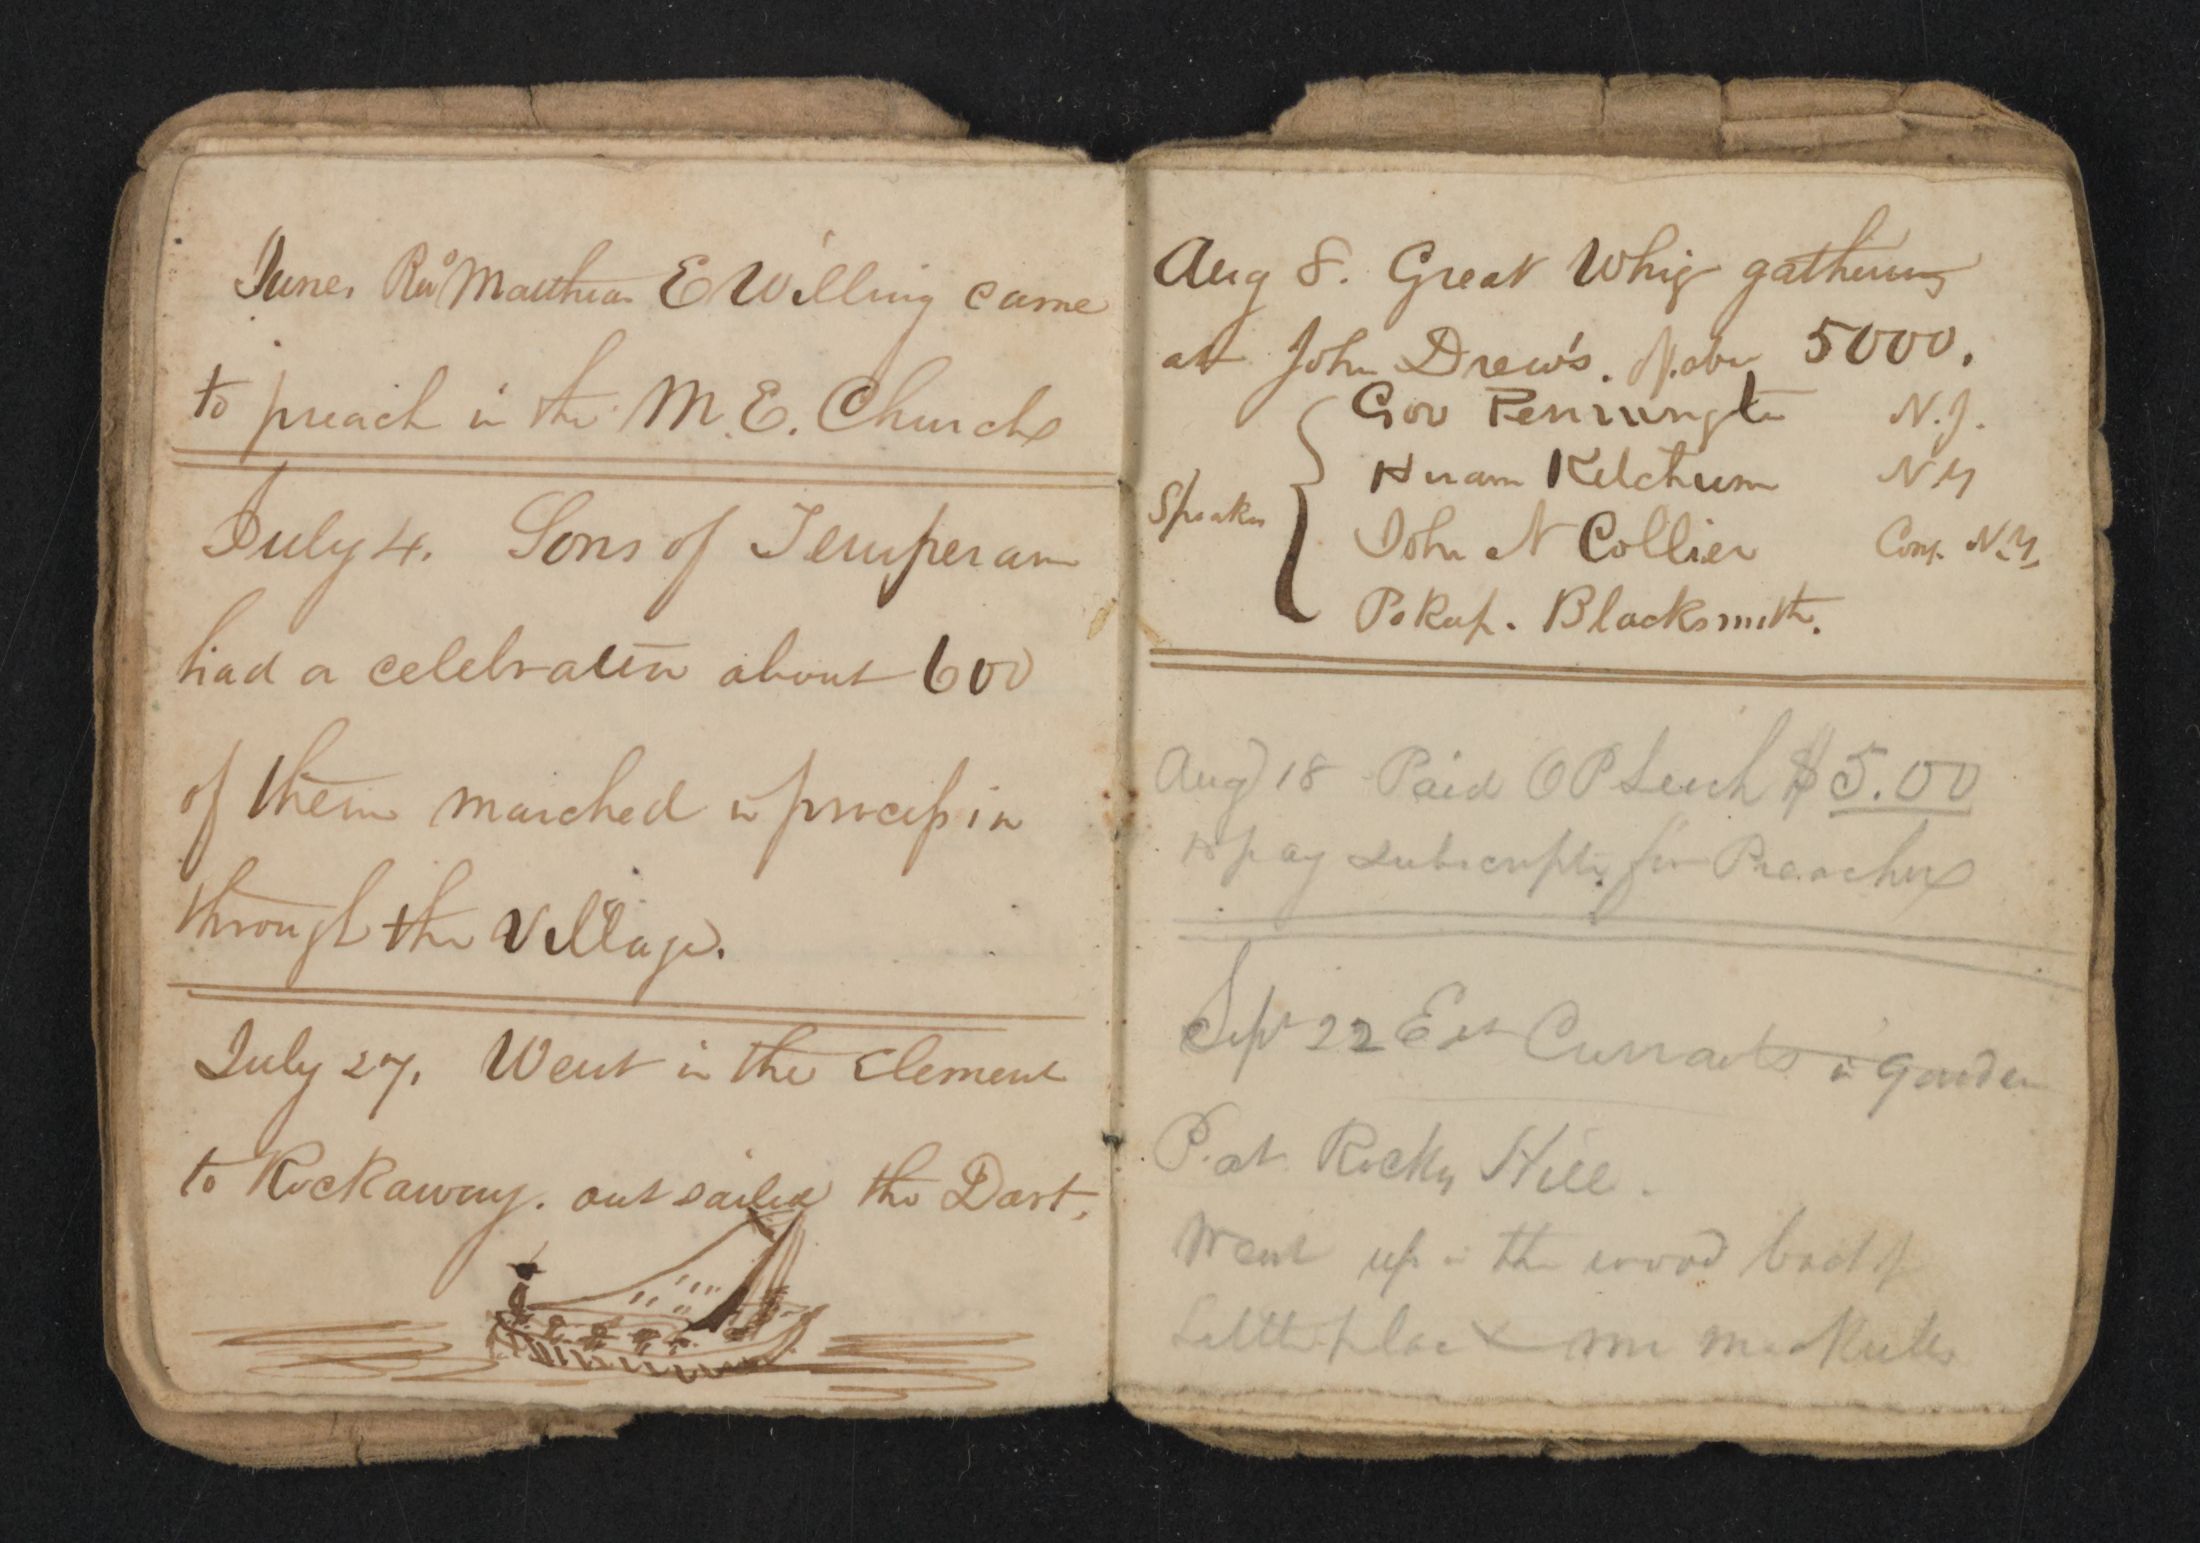 June. Rev Matthias E Willing came
to preach in the M. E. Church
July 4. Sons of Temperan
had a celebration about 600
of them marched in processin
through the Village.
July 27. Went in the Element
to Rockaway. out sailed the Dart.
Aug 8. Great Whig gathering
at John Drew's. 5000.
Speakers
Gov Pennington N.J.
Hiram Ketchum N Y
John N Collier Con. N.Y.
Pokup. Blacksmith.
Aug 18 Paid O P Leech $5.00
to pay subscriptn for Preacher
Sept 22 Eat Currants in garden
P. at Rocky Hill.
Went up in the wood back of
Little place